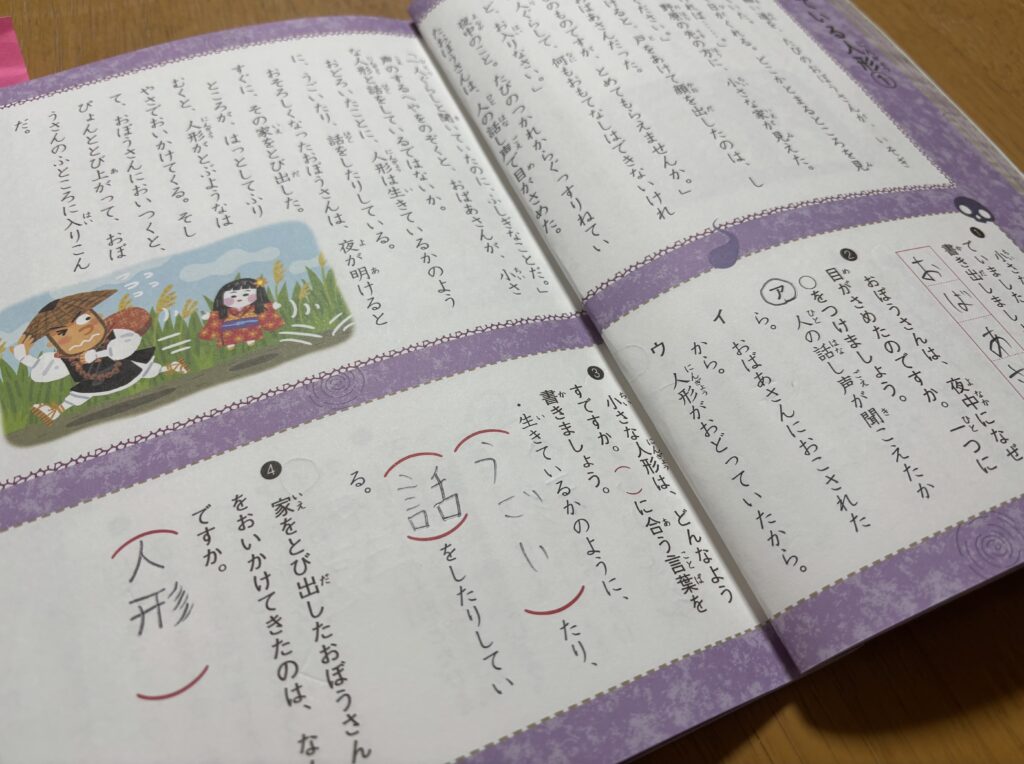 ている人形①
とめてもらえませんか。」
戸をあけて顔を出したのは、し
小さな家が見えた。
何もおもてなしはできないけれ
夜中のこと。たびのつかれからぐっすりねてい
たおぼうさんは、人の話し声で目がさめた。
声のするへやをのぞくと、おばあさんが、小さ
な人形と話をしているではないか。
おどろいたことに、人形は生きているかのよう
に、うごいたり、話をしたりしている。
おそろしくなったおぼうさんは、夜が明けると
すぐに、その家をとび出した。
ところが、はっとしてふり
むくと、人形がとぶようなは
やさでおいかけてくる。そし
て、おぼうさんにおいつくと、
ぴょんととび上がって、おぼ
うさんのふところに入りこん
だ。
❶
書き出しまし
おばあさ
❷ おぼうさんは、夜中になぜ
目がさめたのですか。一つに
○をつけましょう。
ア 人の話し声が聞こえたか
ら。
イ おばあさんにおこされた
から。
ウ 人形がおどっていたから。
❸ 小さな人形は、どんなよう
すですか。( )に合う言葉を
書きましょう。
・生きているかのように、
(うごい)たり、
(話)をしたりしてい
る。
❹ 家をとび出したおぼうさん
をおいかけてきたのは、な
ですか。
(人形)